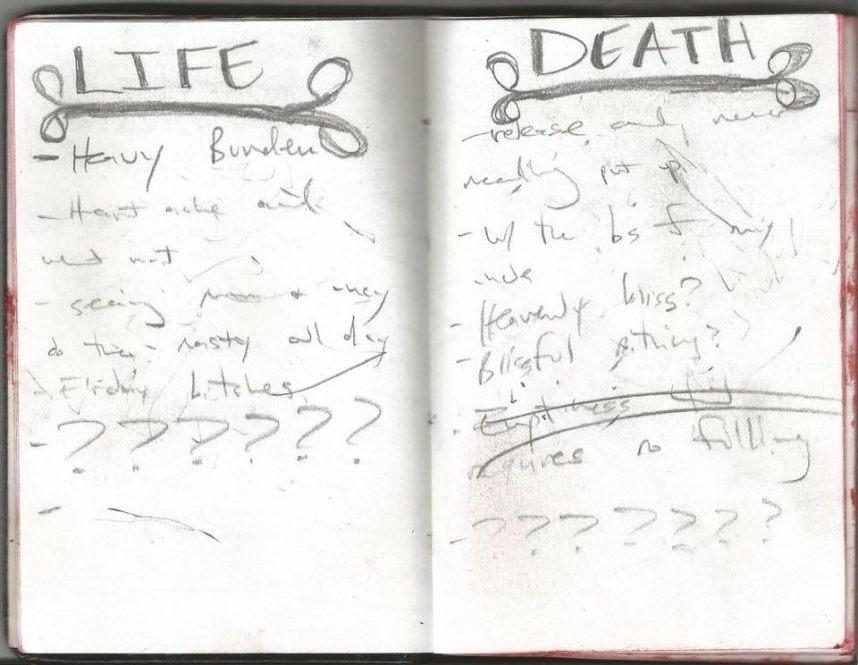 LIFE
- Heavy Burden
- Heart ache and
what not
- seeing
do their nasty all day
- bitches
- ? ? ? ? ? ?
-
DEATH
- release and never
needing put up
- w/ the bs of my
- Heavenly bliss?
- Blissful nothing?
- Emptiness
requires no filling
- ? ? ? ? ? ? ?